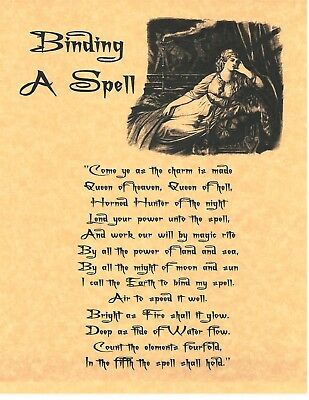 Binding
A Spell
"Come ye as the charm is made
Queen of heaven, Queen of hell,
Horned Hunter of the night
Lend your power unto the spell,
And work our will by magic rite
By all the power of land and sea,
By all the might of moon and sun
I call the Earth to bind my spell.
Air to speed it well.
Bright as Fire shall it glow.
Deep as tide of Water flow.
Count the elements fourfold,
In the fifth the spell shall hold."